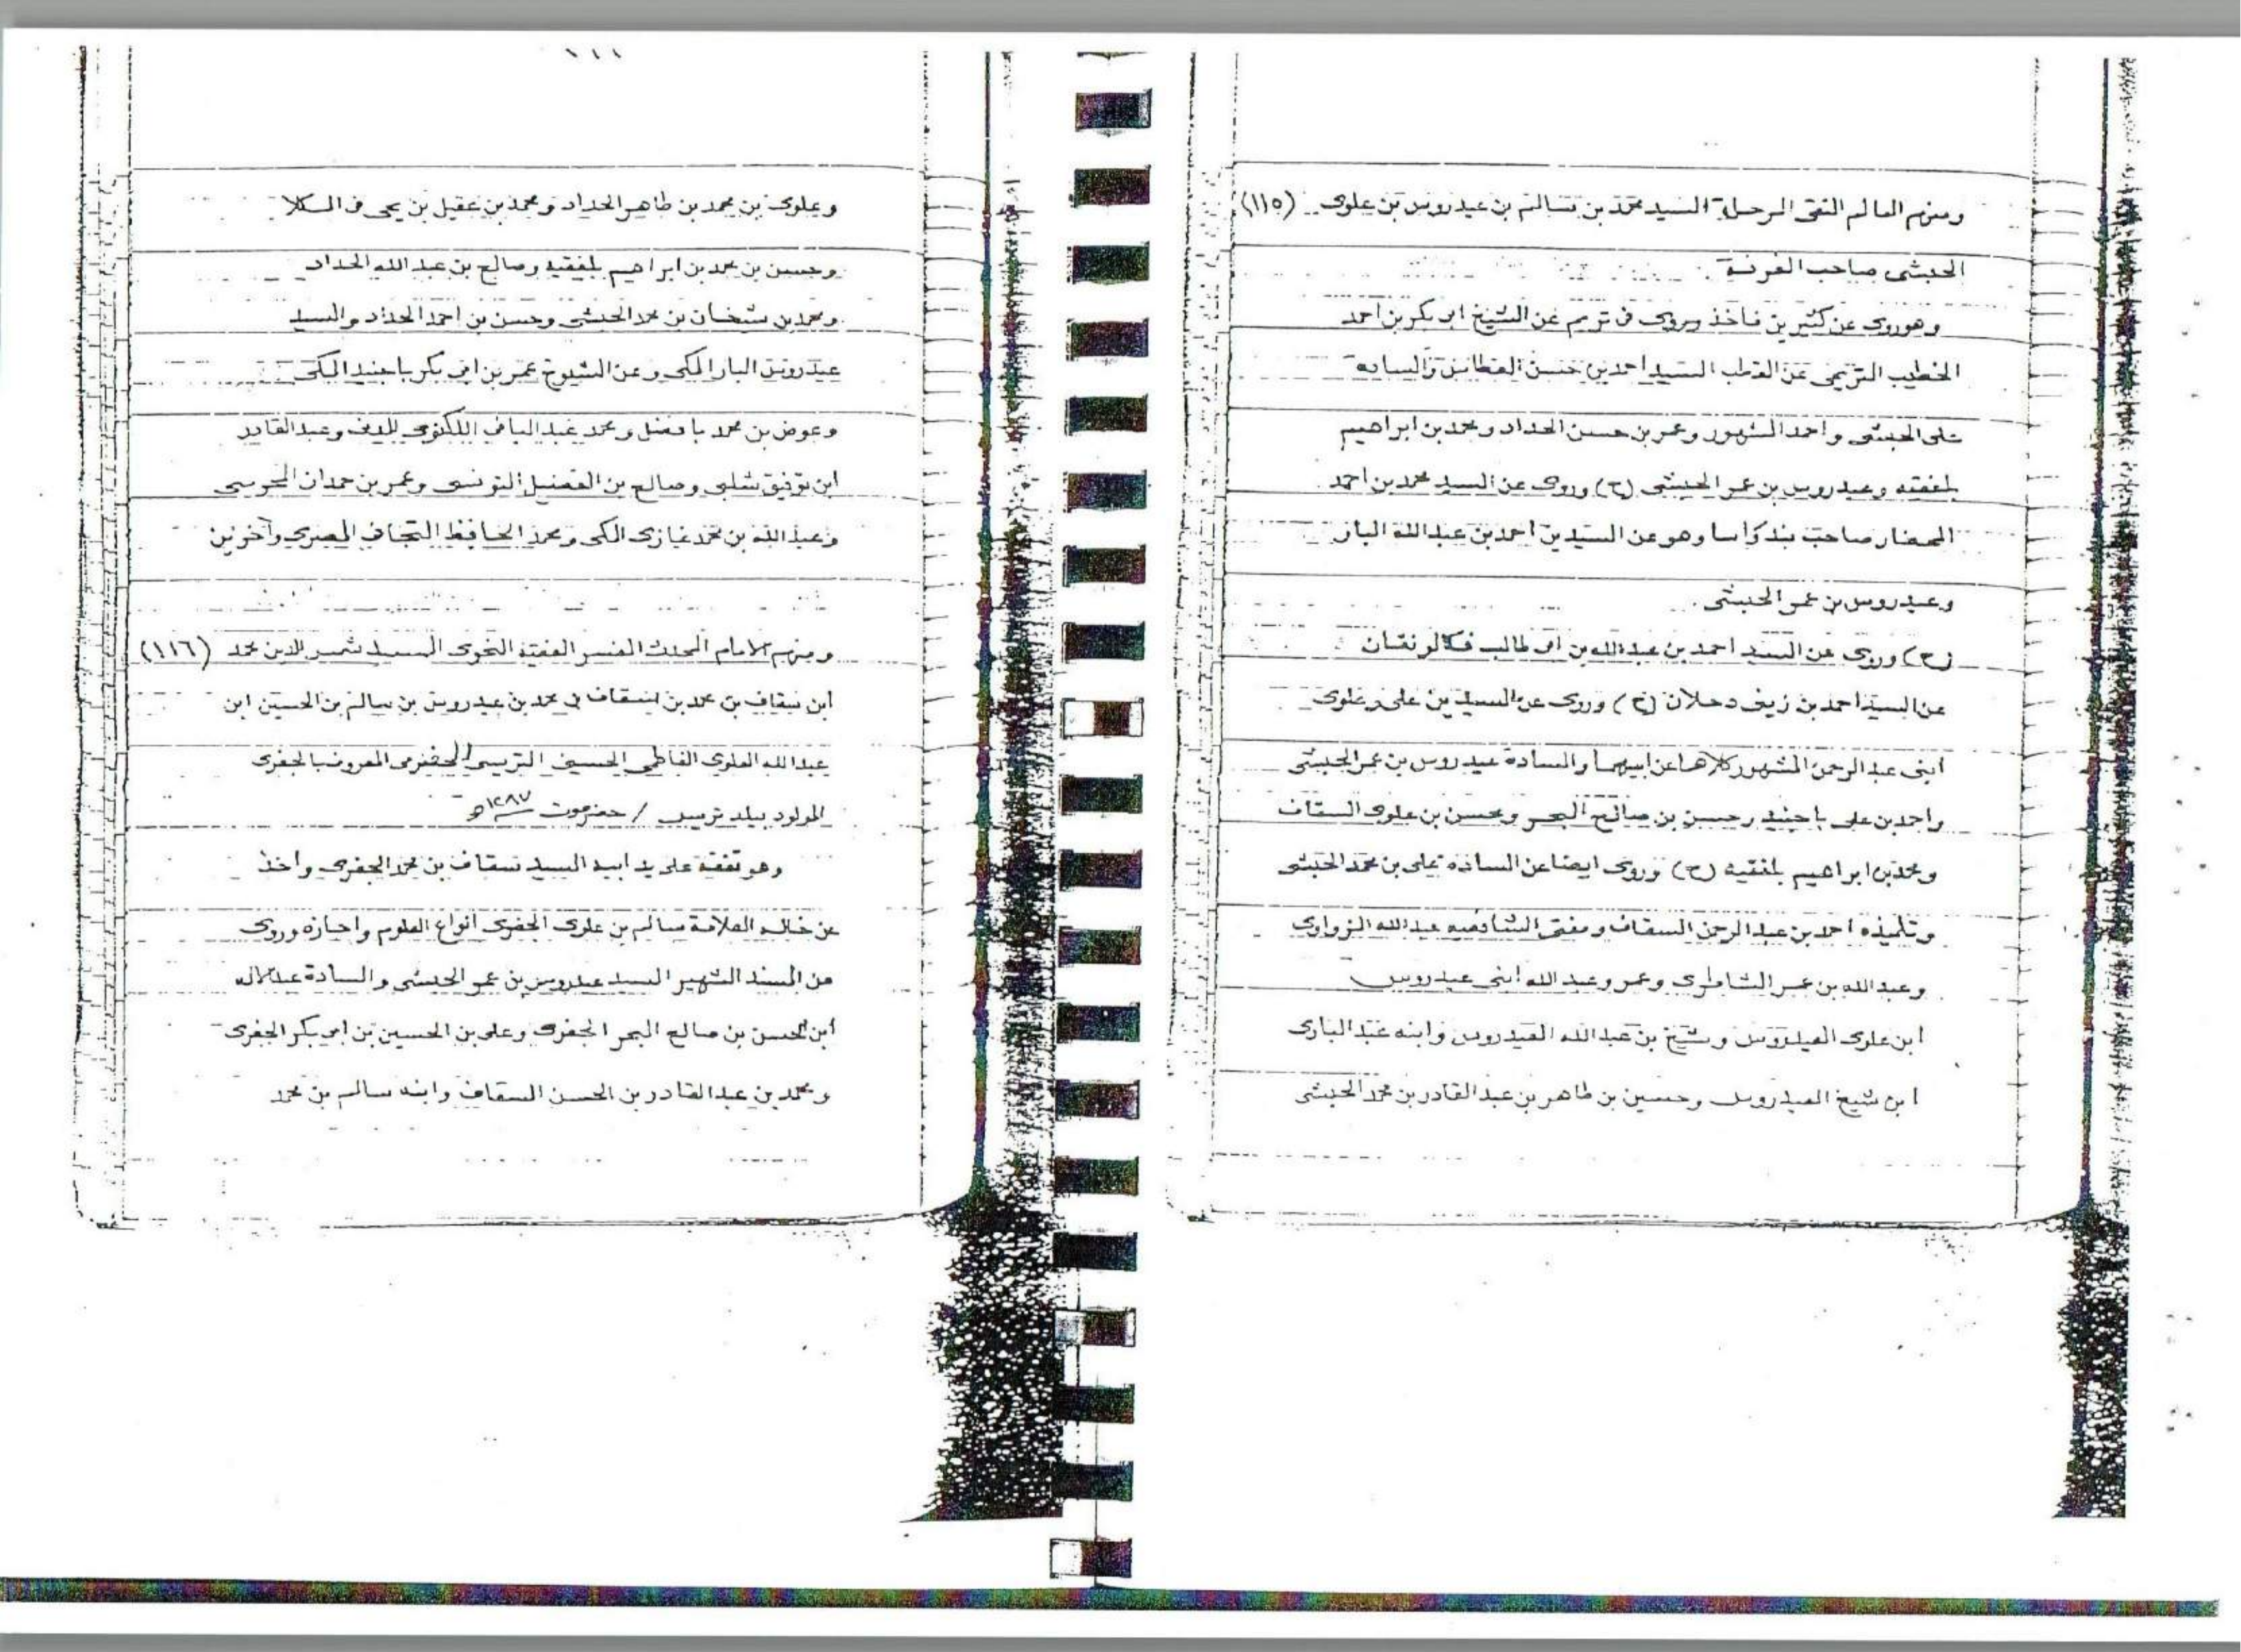 ومنهم العالم التقى الرحلة السيد محمد بن سالم بن عيدروس بن علوى (١١٥)
الحبشى صاحب الغرفة
وهو روى عن كثيرين فأخذ وروى فى تريم عن الشيخ ابو بكر بن احمد
الخطيب التريمى عن القطب السيد احمد بن حسن العطاس والساده
على الحبشى واحمد المشهور وعمر بن حسن الحداد ومحمد بن ابراهيم
بلفقيه وعيدروس بن عمر الحبشى (ح) وروى عن السيد محمد بن احمد
المحضار صاحب بندكراسا وهو عن السيدين احمد بن عبدالله البار
وعيدروس بن عمر الحبشى
(ح) وروى عن السيد احمد بن عبدالله بن ابى طالب فكالونقان
عن السيد احمد بن زينى دحلان (ح) وروى عن السيدين على وعلوى
ابنى عبد الرحمن المشهور كلاهما عن ابيهما والسادة عيدروس بن عمر الحبشى
واحمد بن على باجنيد وحسن بن صالح البحر ومحسن بن علوى السقاف
ومحمد بن ابراهيم بلفقيه (ح) وروى ايضا عن السادة على بن محمد الحبشى
وتلميذه احمد بن عبد الرحمن السقاف ومفتى الشافعيه عبدالله الزواوى
وعبدالله بن عمر الشاطرى وعمر وعبد الله ابنى عيدروس
ابن علوى العيدروس وشيخ بن عبدالله العيدروس وابنه عبد البارى
ابن شيخ العيدروس وحسين بن طاهر بن عبد القادر بن محمد الحبشى
١١١
وعلوى بن محمد بن طاهر الحداد ومحمد بن عقيل بن يحى فى المكلا
وحسين بن محمد بن ابراهيم بلفقيه وصالح بن عبد الله الحداد
ومحمد بن شيخان بن محمد الحبشى وحسن بن احمد الحداد والسيد
عيدروس البار المكى وعن الشيوخ عمر بن ابى بكر باجنيد المكى
وعوض بن محمد بافضل ومحمد عبد الباقى اللكنوى المدنى وعبد القادر
ابن توفيق شلبى وصالح بن الفضيل التونسى وعمر بن حمدان المحرسى
وعبد الله بن محمد غازى المكى ومحمد الحافظ التجانى المصرى وآخرين
ومنهم الامام المحدث المفسر الفقيه النحوى السيد شمس الدين محمد (١١٦)
ابن سقاف بن محمد بن سقاف بن محمد بن عيدروس بن سالم بن الحسين ابن
عبدالله العلوى الفاطمى الحسينى التريسى الحضرمى المعروف بالجفرى
المولود ببلد تريس / حضرموت سنة ١٢٨٧ هـ
وهو تفقه على يد ابيه السيد سقاف بن محمد الجفرى واخذ
عن خاله العلامة سالم بن علوى الجفرى انواع العلوم واجازه وروى
عن المسند الشهير السيد عيدروس بن عمر الحبشى والسادة عبداللاه
ابن الحسن بن صالح البحر الجفرى وعلى بن الحسين بن ابى بكر الجفرى
ومحمد بن عبد القادر بن الحسن السقاف وابنه سالم بن محمد